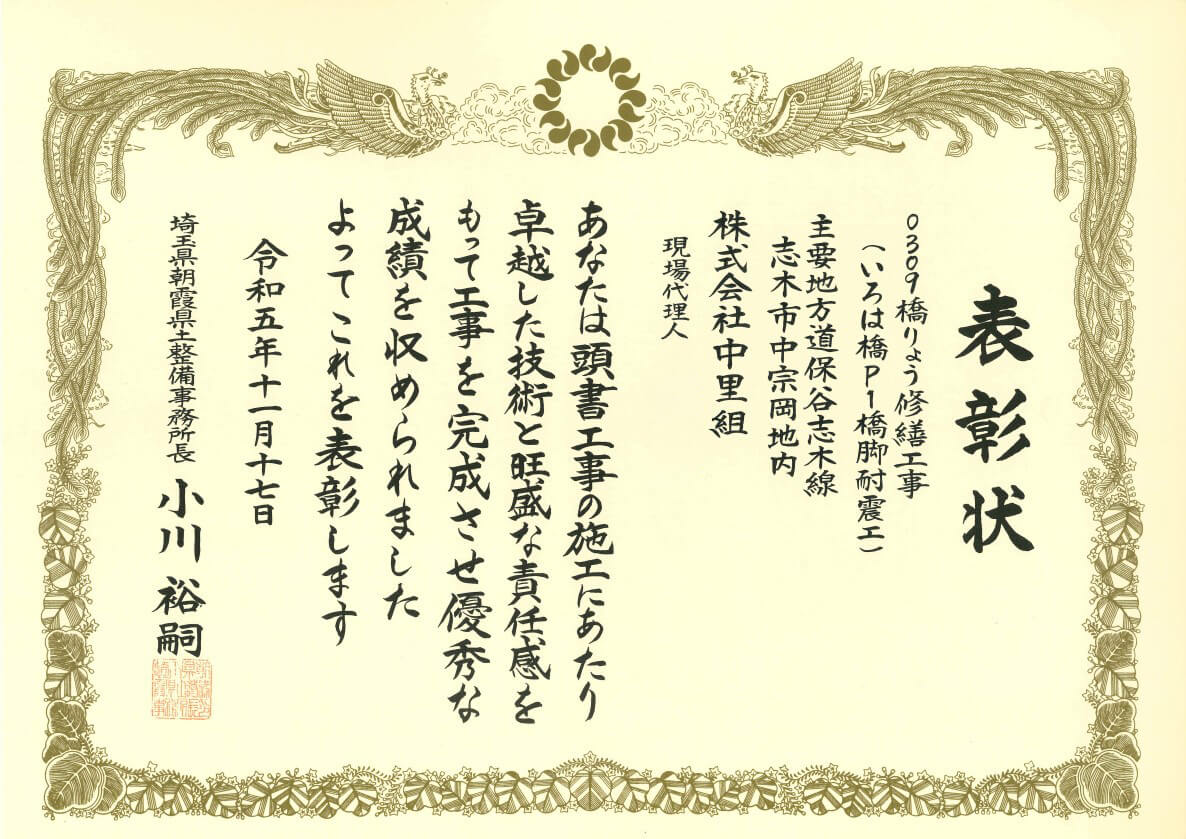 表彰状
0309橋りょう修繕工事
(いろは橋P1橋脚耐震工)
主要地方道保谷志木線
志木市中宗岡地内
株式会社中里組
現場代理人
あなたは頭書工事の施工にあたり
卓越した技術と旺盛な責任感を
もって工事を完成させ優秀な
成績を収められました
よってこれを表彰します
令和五年十一月十七日
埼玉県朝霞県土整備事務所長 小川裕嗣